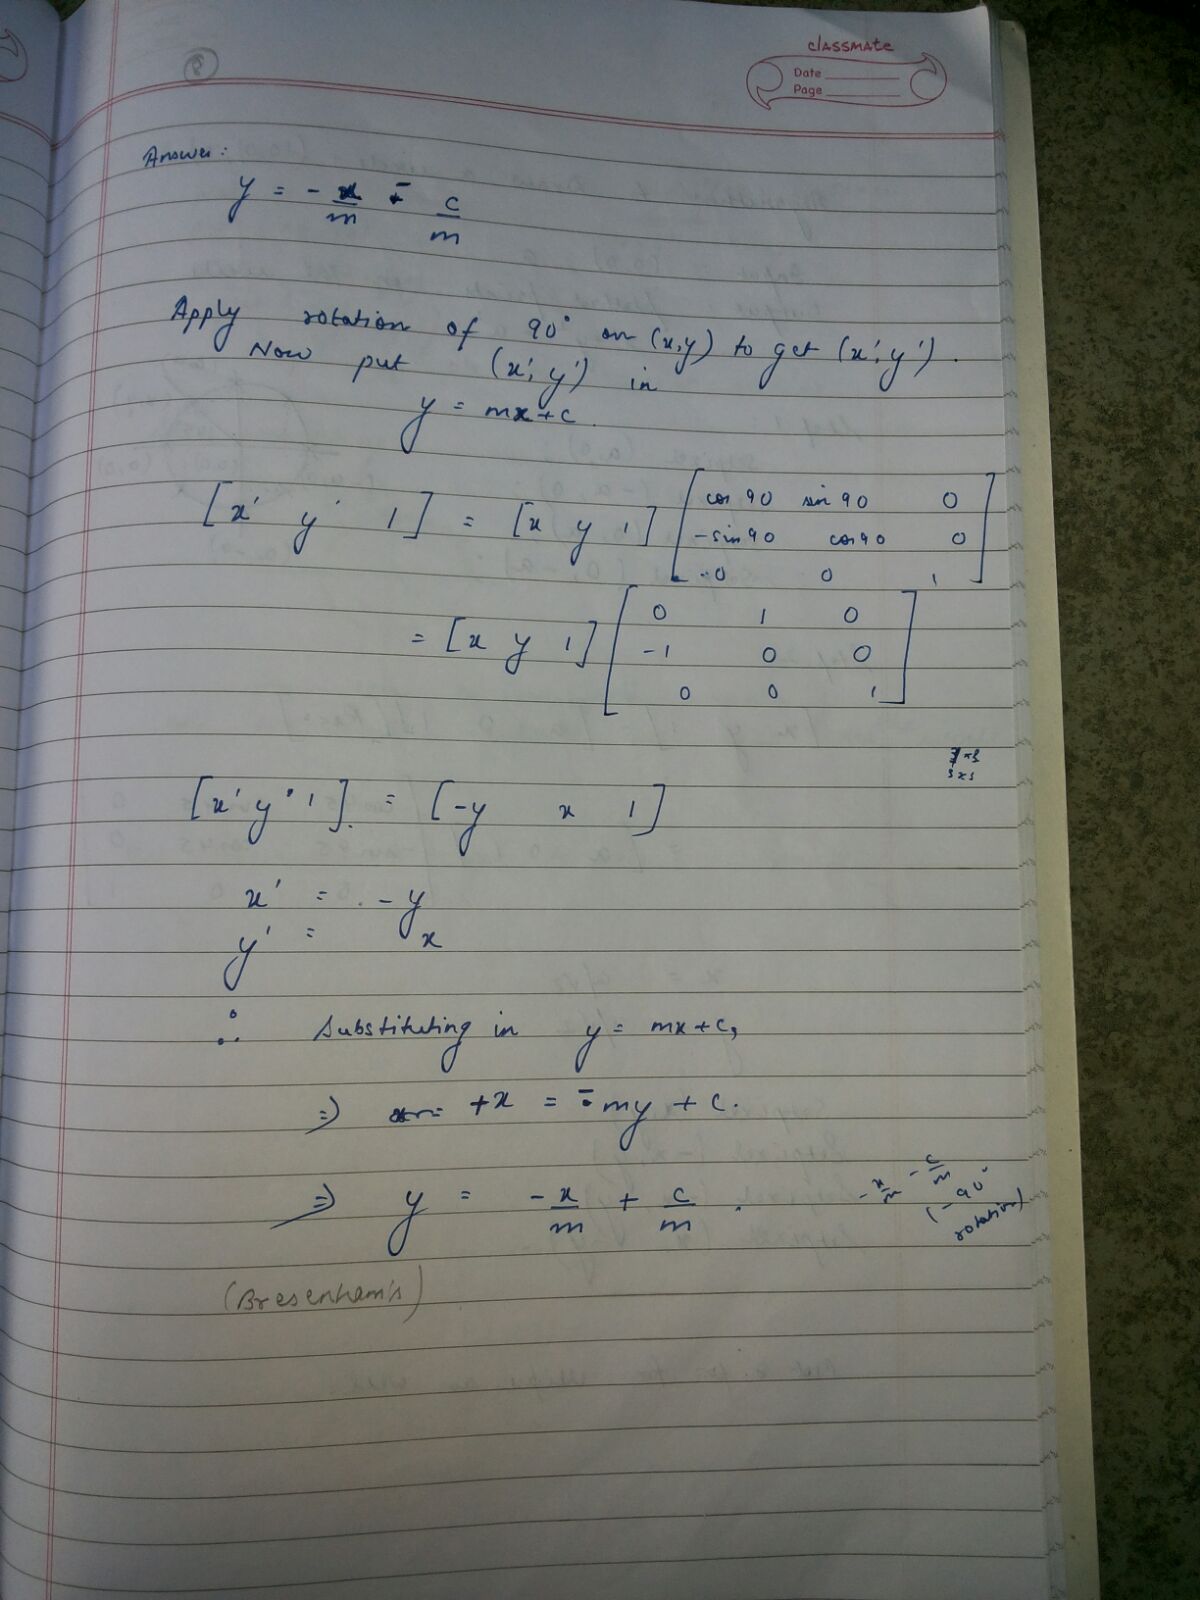 classmate
Date
Page
8
Answer:
y = - x/m - c/m
Apply rotation of 90° on (x,y) to get (x',y').
Now put (x',y') in
y = mx+c.
[x' y' 1] = [x y 1] [cos 90 sin 90 0
-sin 90 cos 90 0
0 0 1]
= [x y 1] [0 1 0
-1 0 0
0 0 1]
[x' y' 1] = [-y x 1]
x' = -y
y' = x
∴ Substituting in y = mx+c,
⇒ +x = -my + c.
⇒ y = -x/m + c/m .
-x/m - c/m
(-90°
rotation)
(Bresenham's)